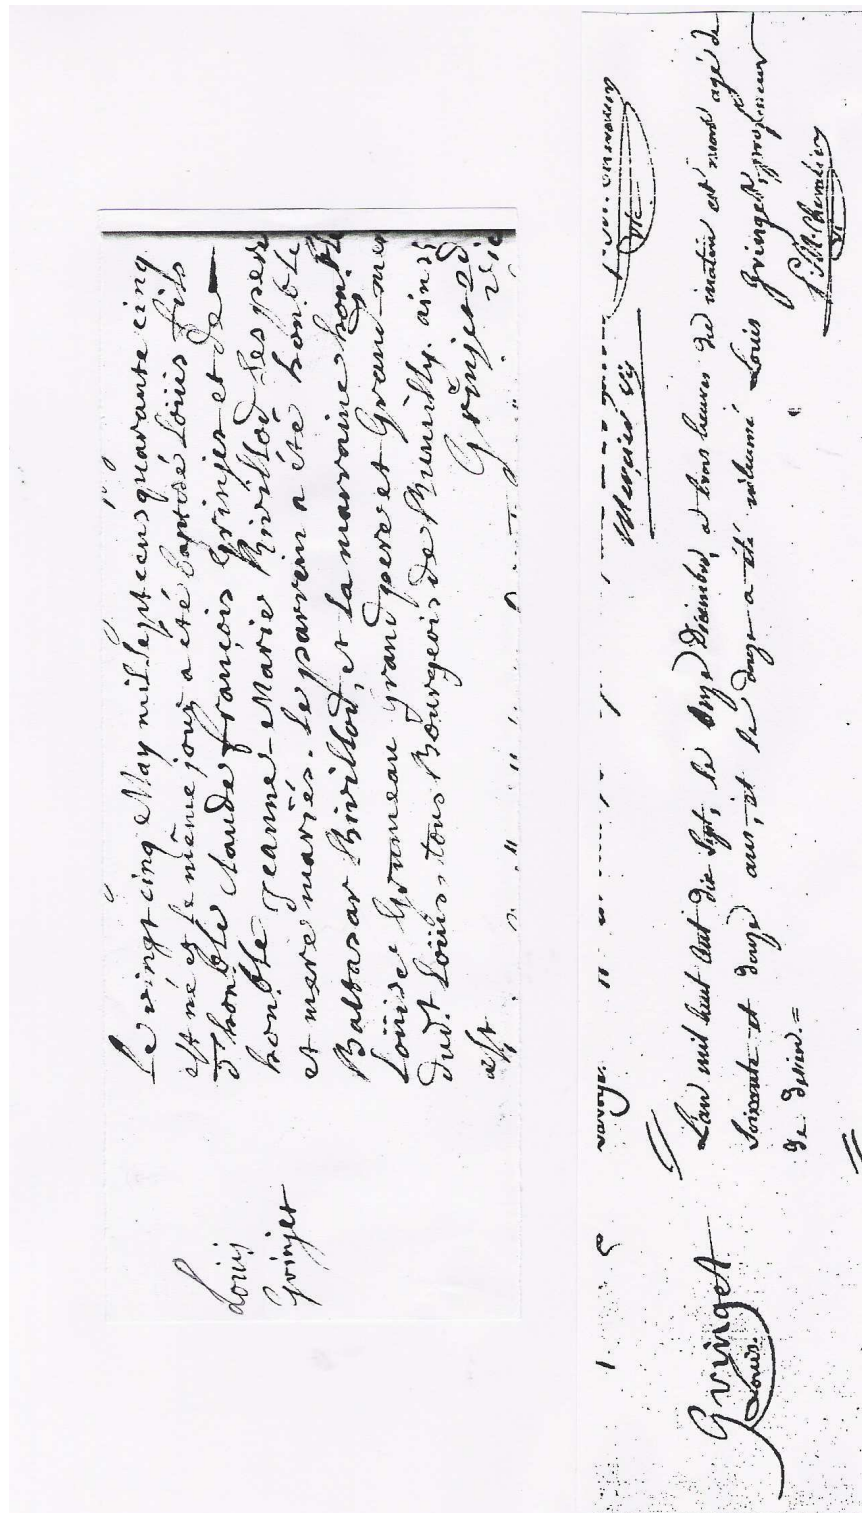 Louis
Grinjet
Le vingt cinq May mil sept cens quarante cinq
est né et le même jour a été baptisé Loüis fils
d'hon.ble Claude françois Grinjet et de
hon.ble Jeanne-Marie Rivillod ses pere
et mere mariés. Le parrein a été hon.ble
Baltasar Rivillod, et la marraine hon.ble
Loüise grand pere et Grand-mer
dud.t Loüis, tous Bourgeois de Rumilly. ainsi
est Grinjet
vic
savoye.
Mercier Vic
Gringet
Louis.
L'an mil huit cent dix Sept, le Onze Décembre, a trois heures du matin est mort agé de
Soixante et douze ans, et le douze a été inhumé Louis Gringet, professeur
de dessein.=
J. M. Chevalier